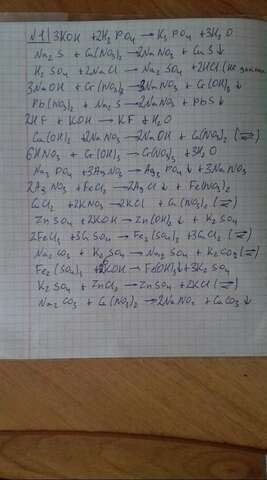 N1 3KOH + 2H3PO4 → K3PO4 + 3H2O
Na2S + Cu(NO3)2 → 2NaNO3 + CuS↓
H2SO4 + 2NaCl → Na2SO4 + 2HCl (не
3NaOH + Cr(NO3)3 → 3NaNO3 + Cr(OH)3↓
Pb(NO3)2 + Na2S → 2NaNO3 + PbS↓
2HF + KOH → KF + H2O
Ca(OH)2 + 2NaNO3 → 2NaOH + Ca(NO3)2 (⇄)
6HNO3 + Cr(OH)3 → Cr(NO3)3 + 3H2O
Na3PO4 + 3AgNO3 → Ag3PO4↓ + 3NaNO3
2AgNO3 + FeCl2 → 2AgCl↓ + Fe(NO3)2
CuCl2 + 2KNO3 → 2KCl + Cu(NO3)2 (⇄)
ZnSO4 + 2KOH → Zn(OH)2↓ + K2SO4
2FeCl3 + 3CuSO4 → Fe2(SO4)3 + 3CuCl2 (⇄)
Na2CO3 + K2SO4 → Na2SO4 + K2CO3 (⇄)
Fe2(SO4)3 + 6KOH → Fe(OH)3↓ + 3K2SO4
K2SO4 + ZnCl2 → ZnSO4 + 2KCl (⇄)
Na2CO3 + Ca(NO3)2 → 2NaNO3 + CaCO3↓